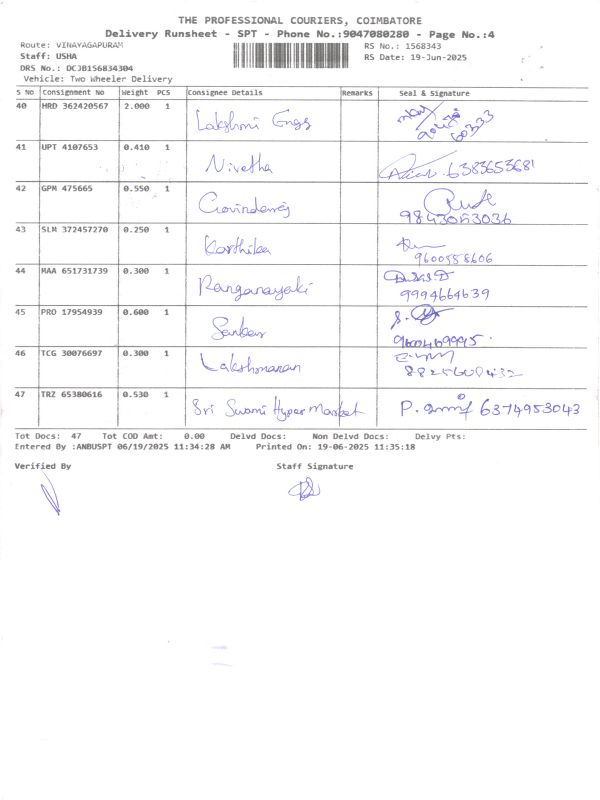 THE PROFESSIONAL COURIERS, COIMBATORE
Delivery Runsheet - SPT - Phone No.:9047080280 - Page No.:4
Route: VINAYAGAPURAM RS No.: 1568343
Staff: USHA RS Date: 19-Jun-2025
DRS No.: DCJB156834304
Vehicle: Two Wheeler Delivery
S No Consignment No Weight PCS Consignee Details Remarks Seal & Signature
40 HRD 362420567 2.000 1 Lakshmi Engg
41 UPT 4107653 0.410 1 Nivetha 6383653681
42 GPM 475665 0.550 1 Govindaraj
9843053036
43 SLM 372457270 0.250 1 Karthika
9600558606
44 MAA 651731739 0.300 1 Ranganayaki
9994664639
45 PRO 17954939 0.600 1 Sankar
46 TCG 30076697 0.300 1 Lakshmanan
8825608432
47 TRZ 65380616 0.530 1 Sri Swami Hyper Market P. 6374953043
Tot Docs: 47 Tot COD Amt: 0.00 Delvd Docs: Non Delvd Docs: Delvy Pts:
Entered By :ANBUSPT 06/19/2025 11:34:28 AM Printed On: 19-06-2025 11:35:18
Verified By Staff Signature